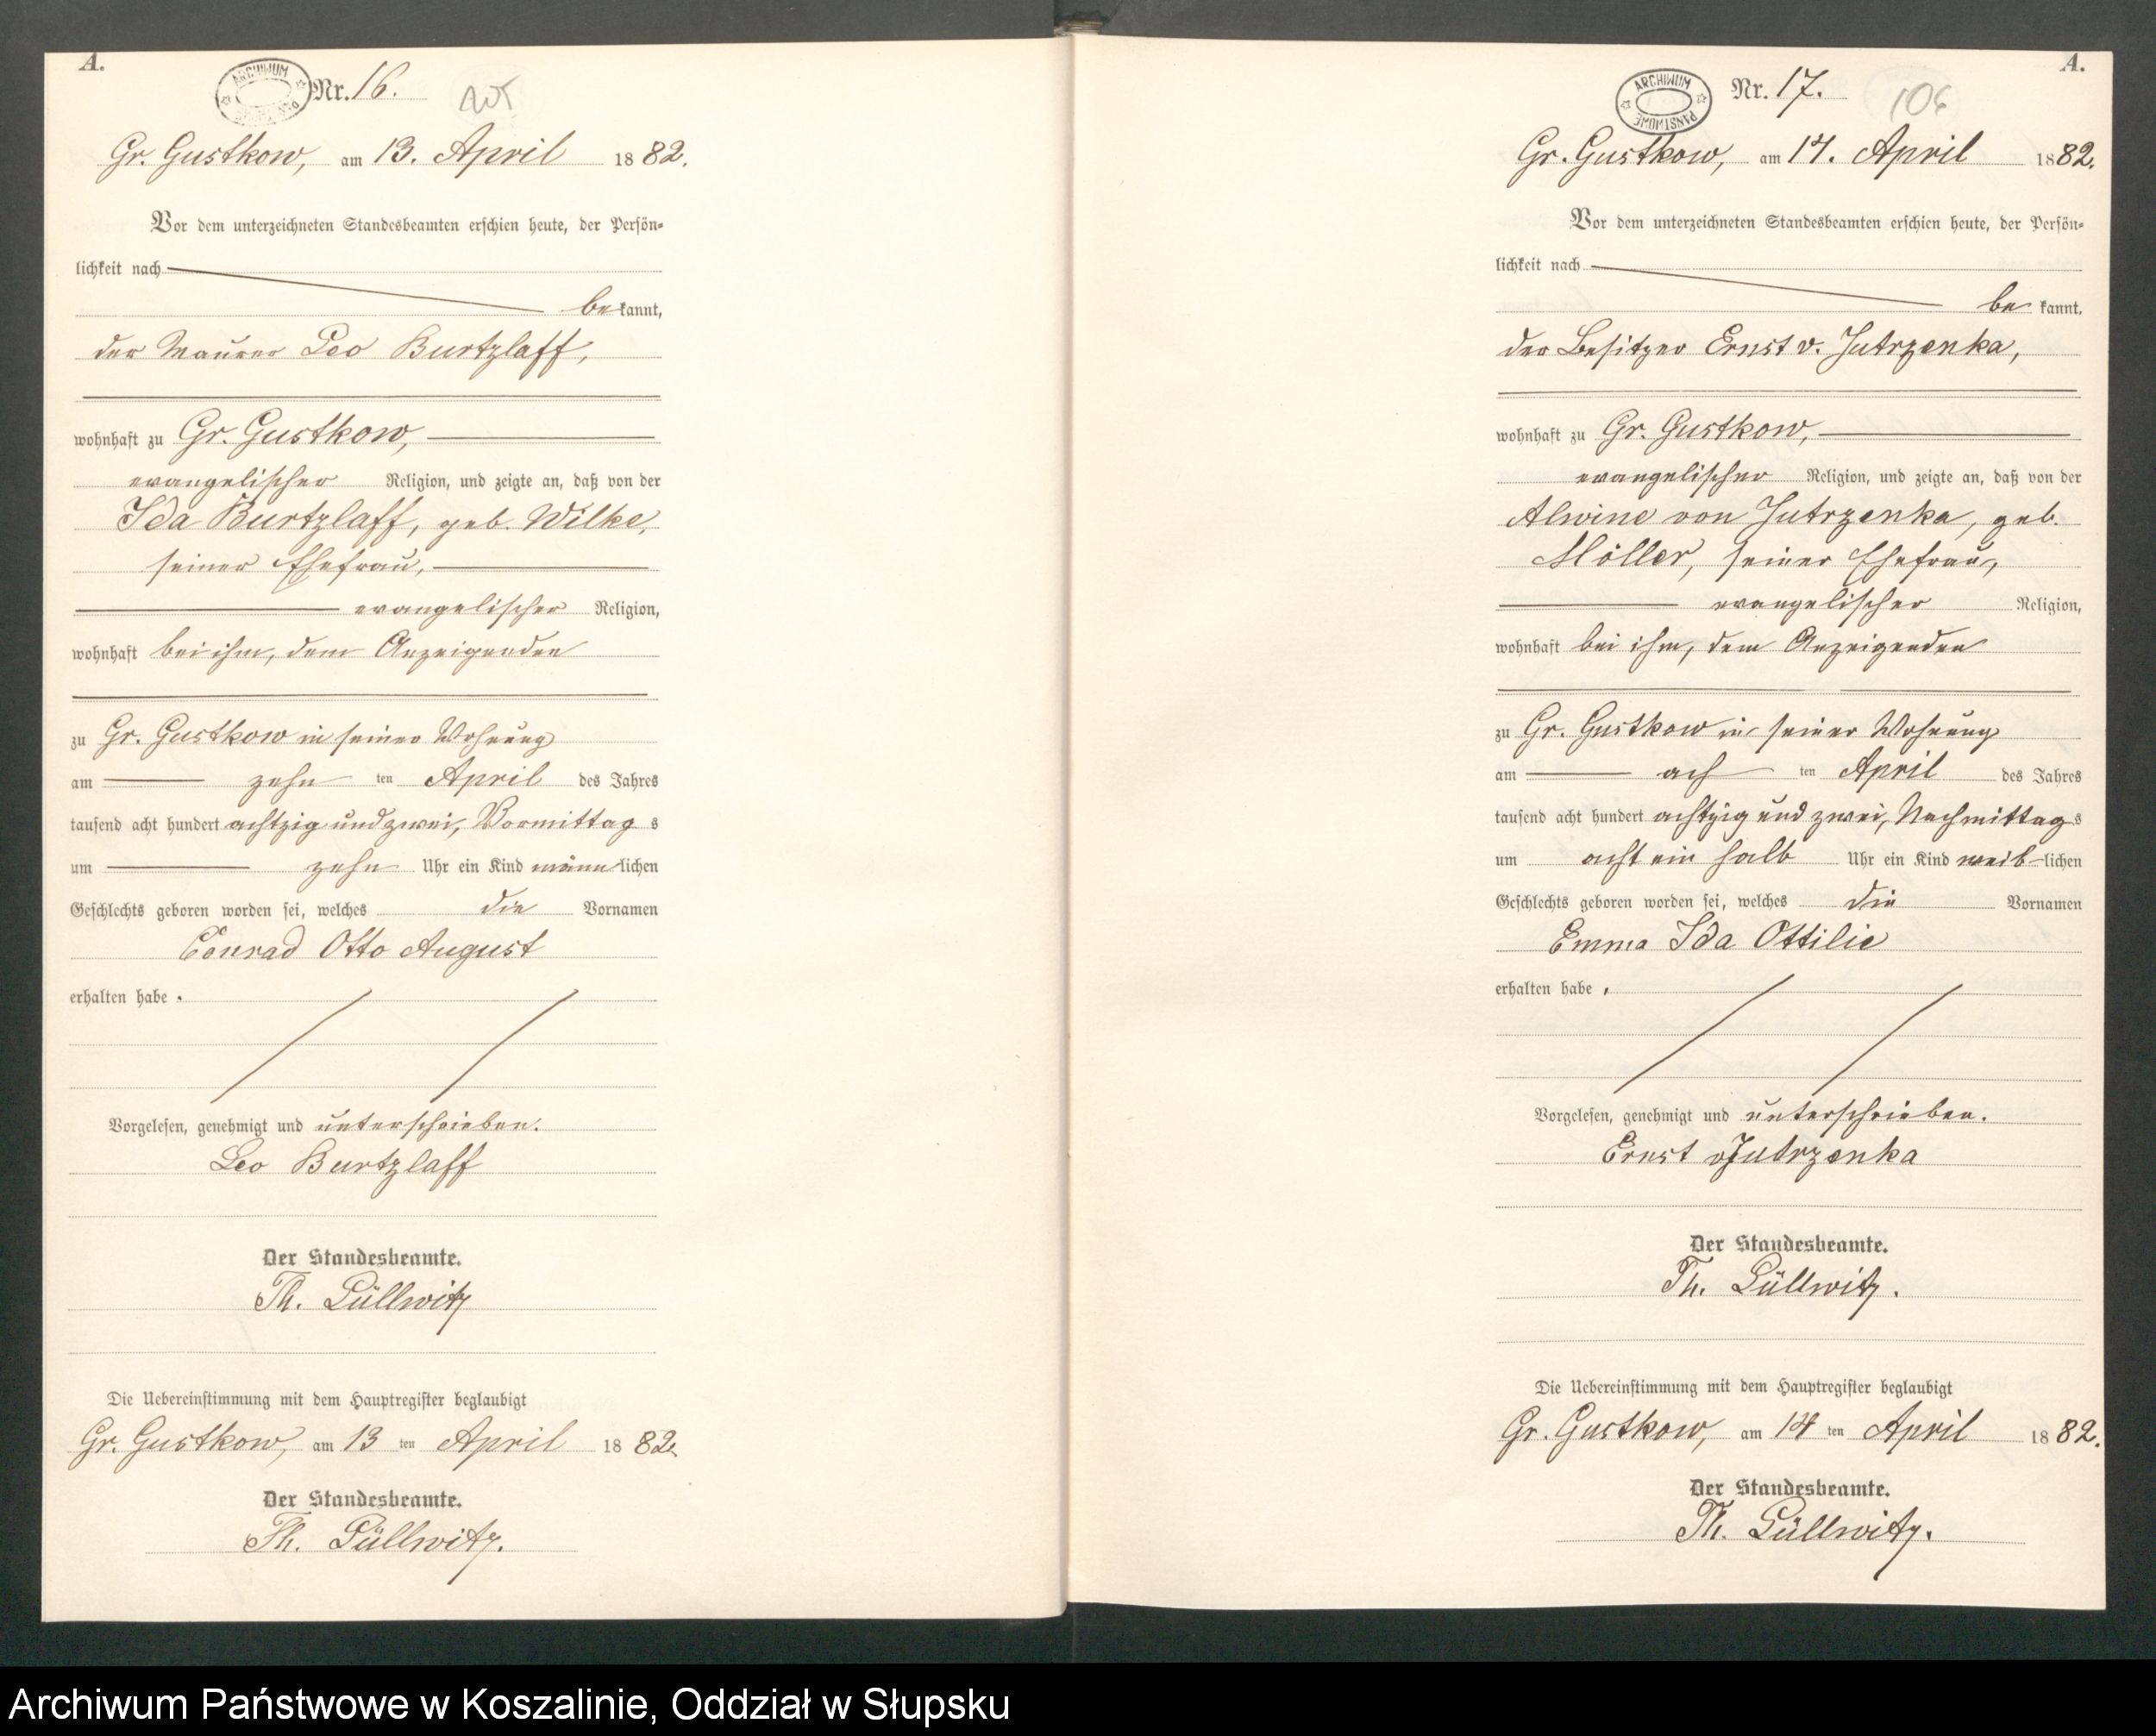 A.
ARCHIWUM
Nr. 16.
Gr. Gustkow, am 13. April 1882.
Vor dem unterzeichneten Standesbeamten erschien heute, der Persön-
lichkeit nach
bekannt,
der Maurer Leo Burtzlaff,
wohnhaft zu Gr. Gustkow,
evangelischer Religion, und zeigte an, daß von der
Ida Burtzlaff, geb. Wilke,
seiner Ehefrau,
evangelischer Religion,
wohnhaft bei ihm, dem Anzeigenden
zu Gr. Gustkow in seiner Wohnung
am zehn ten April des Jahres
tausend acht hundert achtzig und zwei, Vormittags
um zehn Uhr ein Kind männlichen
Geschlechts geboren worden sei, welches die Vornamen
Conrad Otto August
erhalten habe.
Vorgelesen, genehmigt und unterschrieben.
Leo Burtzlaff
Der Standesbeamte.
Th. Lüllwitz
Die Uebereinstimmung mit dem Hauptregister beglaubigt
Gr. Gustkow, am 13 ten April 1882.
Der Standesbeamte.
Th. Lüllwitz.
A.
ARCHIWUM PAŃSTWOWE
Nr. 17. 106
Gr. Gustkow, am 14. April 1882.
Vor dem unterzeichneten Standesbeamten erschien heute, der Persön-
lichkeit nach
be kannt,
der Besitzer Ernst v. Jutrzenka,
wohnhaft zu Gr. Gustkow,
evangelischer Religion, und zeigte an, daß von der
Alwine von Jutrzenka, geb.
Möller, seiner Ehefrau,
evangelischer Religion,
wohnhaft bei ihm, dem Anzeigenden
zu Gr. Gustkow in seiner Wohnung
am ach ten April des Jahres
tausend acht hundert achtzig und zwei, Nachmittags
um acht ein halb Uhr ein Kind weiblichen
Geschlechts geboren worden sei, welches die Vornamen
Emma Ida Ottilie
erhalten habe.
Vorgelesen, genehmigt und unterschrieben.
Ernst vJutrzenka
Der Standesbeamte.
Th. Lüllwitz.
Die Uebereinstimmung mit dem Hauptregister beglaubigt
Gr. Gustkow, am 14 ten April 1882.
Der Standesbeamte.
Th. Lüllwitz.
Archiwum Państwowe w Koszalinie, Oddział w Słupsku